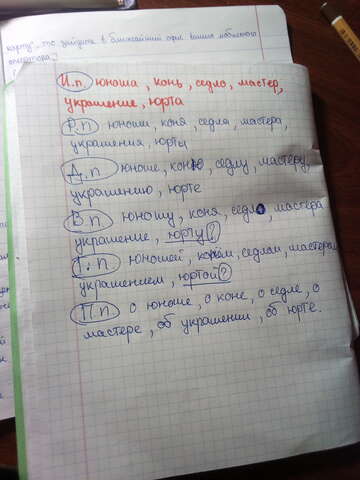 карту", то зайдите в ближайший офис вашего мобильного
оператора!
И.п. юноша, конь, седло, мастер,
украшение, юрта
Р.п юноши, коня, седла, мастера,
украшения, юрты
Д.п юноше, коню, седлу, мастеру,
украшению, юрте
В.п юношу, коня, седло, мастера
украшение, юрту?
Т.п. юношей, конём, седлом, мастером
украшением, юртой?
П.п о юноше, о коне, о седле, о
мастере, об украшении, об юрте.